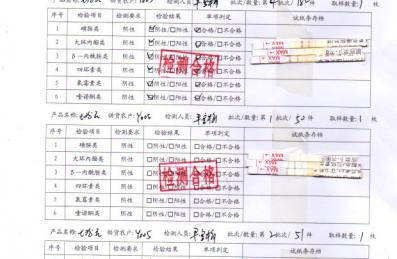 序号 检验项目 检测要求 检验结果 单项判定 试纸条存档
1 磺胺类 阴性 ☑阴性/□阳性 ☑合格/□不合格
2 大环内酯类 阴性 ☑阴性/□阳性 ☑合格/□不合格
3 β-内酰胺类 阴性 ☑阴性/□阳性 ☑合格/□不合格
4 四环素类 阴性 ☑阴性/□阳性 ☑合格/□不合格
5 氯霉素类 阴性 ☑阴性/□阳性 ☑合格/□不合格
6 喹诺酮类 阴性 ☑阴性/□阳性 ☑合格/□不合格
检测合格
MAX
产品名称: 供货农户:Y005 检测人员: 批次/数量:第1批次/50件 取样数量:1枚
序号 检验项目 检测要求 检验结果 单项判定 试纸条存档
1 磺胺类 阴性 □阴性/□阳性 □合格/□不合格
2 大环内酯类 阴性 □阴性/□阳性 □合格/□不合格
3 β-内酰胺类 阴性 □阴性/□阳性 □合格/□不合格
4 四环素类 阴性 □阴性/□阳性 □合格/□不合格
5 氯霉素类 阴性 □阴性/□阳性 □合格/□不合格
6 喹诺酮类 阴性 □阴性/□阳性 □合格/□不合格
检测合格
MAX
产品名称: 供货农户:Y005 检测人员: 批次/数量:第2批次/51件 取样数量:1枚
序号 检验项目 检测要求 检验结果 单项判定 试纸条存档